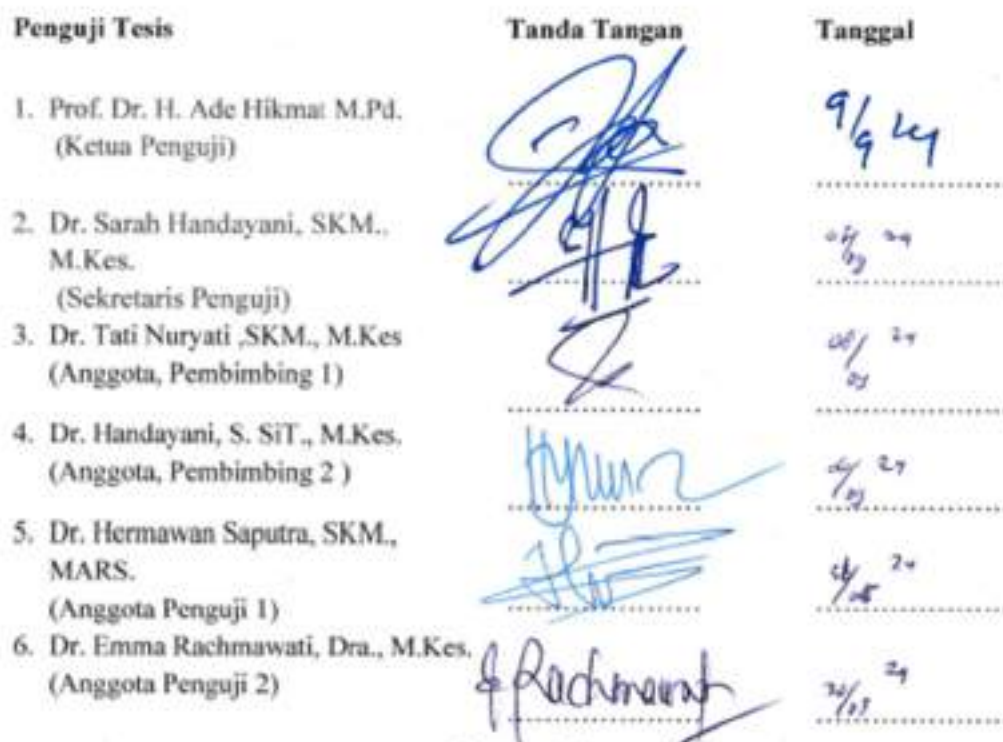 Penguji Tesis Tanda Tangan Tanggal
1. Prof. Dr. H. Ade Hikmat M.Pd. 9/9 24
(Ketua Penguji)
2. Dr. Sarah Handayani, SKM.,
M.Kes.
(Sekretaris Penguji)
3. Dr. Tati Nuryati ,SKM., M.Kes
(Anggota, Pembimbing 1)
4. Dr. Handayani, S. SiT., M.Kes.
(Anggota, Pembimbing 2 )
5. Dr. Hermawan Saputra, SKM.,
MARS.
(Anggota Penguji 1)
6. Dr. Emma Rachmawati, Dra., M.Kes.
(Anggota Penguji 2) Rachmawati